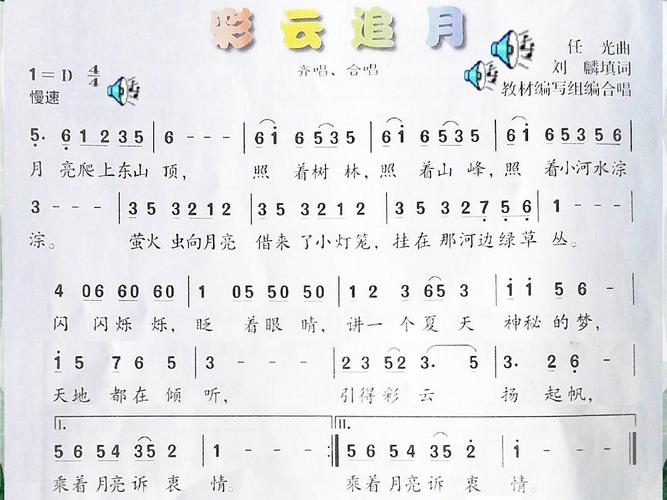 彩云追月
齐唱、合唱
任 光曲
刘 麟填词
教材编写组编合唱
1=D 4/4
慢速
5. 6 1 2 3 5 | 6 - - - | 6 i 5 6 3 5 | 6 i 5 6 3 5 | 6 i 6 5 3 5 6 |
月 亮爬上东山 顶， 照 着树 林，照 着山 峰，照 着小河水淙
3 - - - | 3 5 3 2 1 2 | 3 5 3 2 1 2 | 3 5 3 2 7 5 6 | 1 - - - |
淙。 萤火 虫向月亮 借来了小灯笼，挂在那河边绿草 丛。
4 06 60 60 | 1 05 50 50 | 1 2 3 6 5 3 | i i 5 6 - |
闪 闪烁 烁， 眨 着眼 睛，讲一 个夏 天 神秘的梦，
i 5 7 6 5 | 3 - - - | 2 3 5 2 3. | 3. 2 6 - |
天地 都在倾 听， 引得彩 云 扬 起帆，
I.
5 6 5 4 3 5 2 | 1 - - - :|
II.
5 6 5 4 3 5 2 | 1 - - - ‖
乘着月亮诉 衷 情。 乘着月亮诉 衷 情。